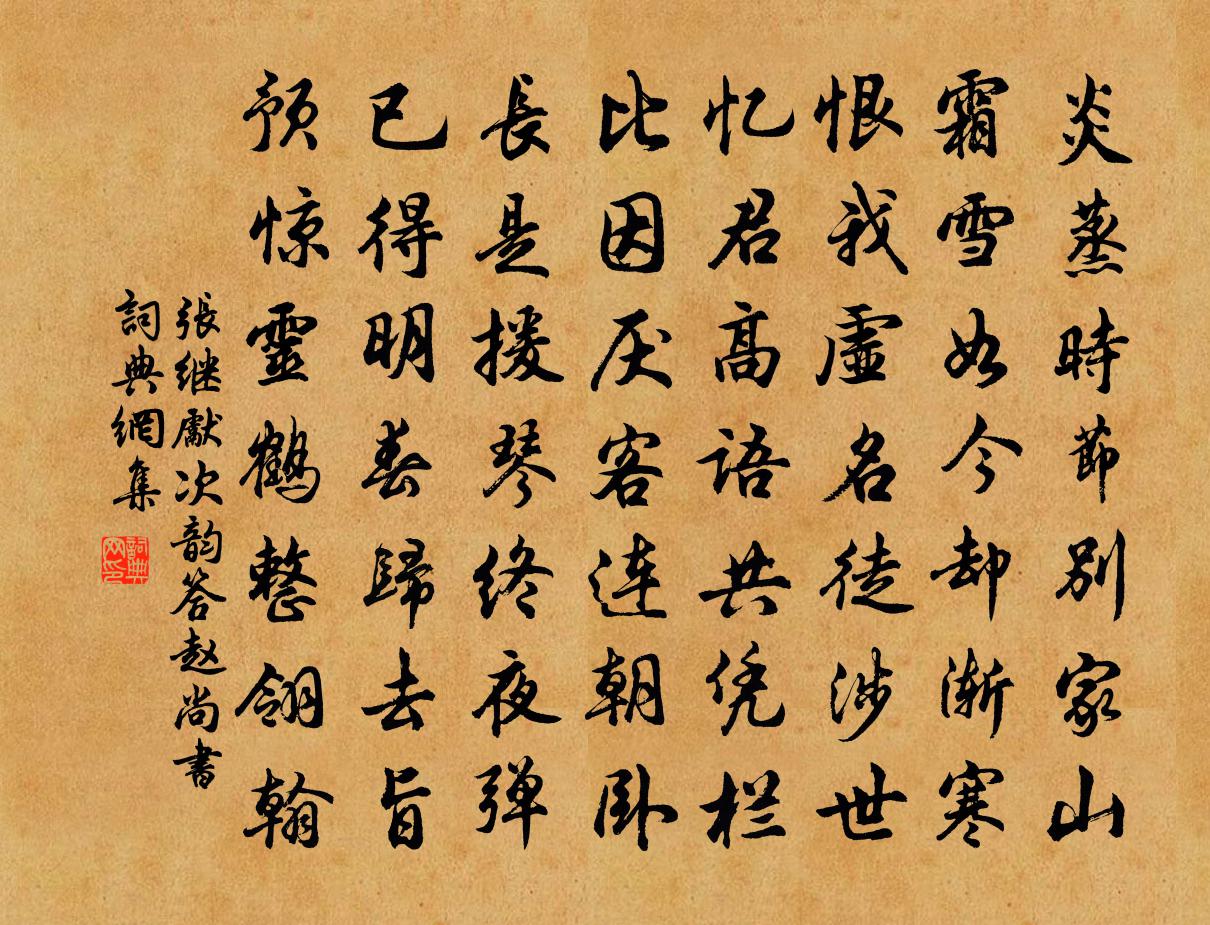 炎蒸時節别家山
霜雪如今却渐寒
恨我虚名徒涉世
忆君高语共凭栏
比因厌客连朝卧
長是援琴终夜弹
已得明春歸去旨
预惊靈鹤整翎翰
張继獻次韵答赵尚書
詞典網集
詞典网印